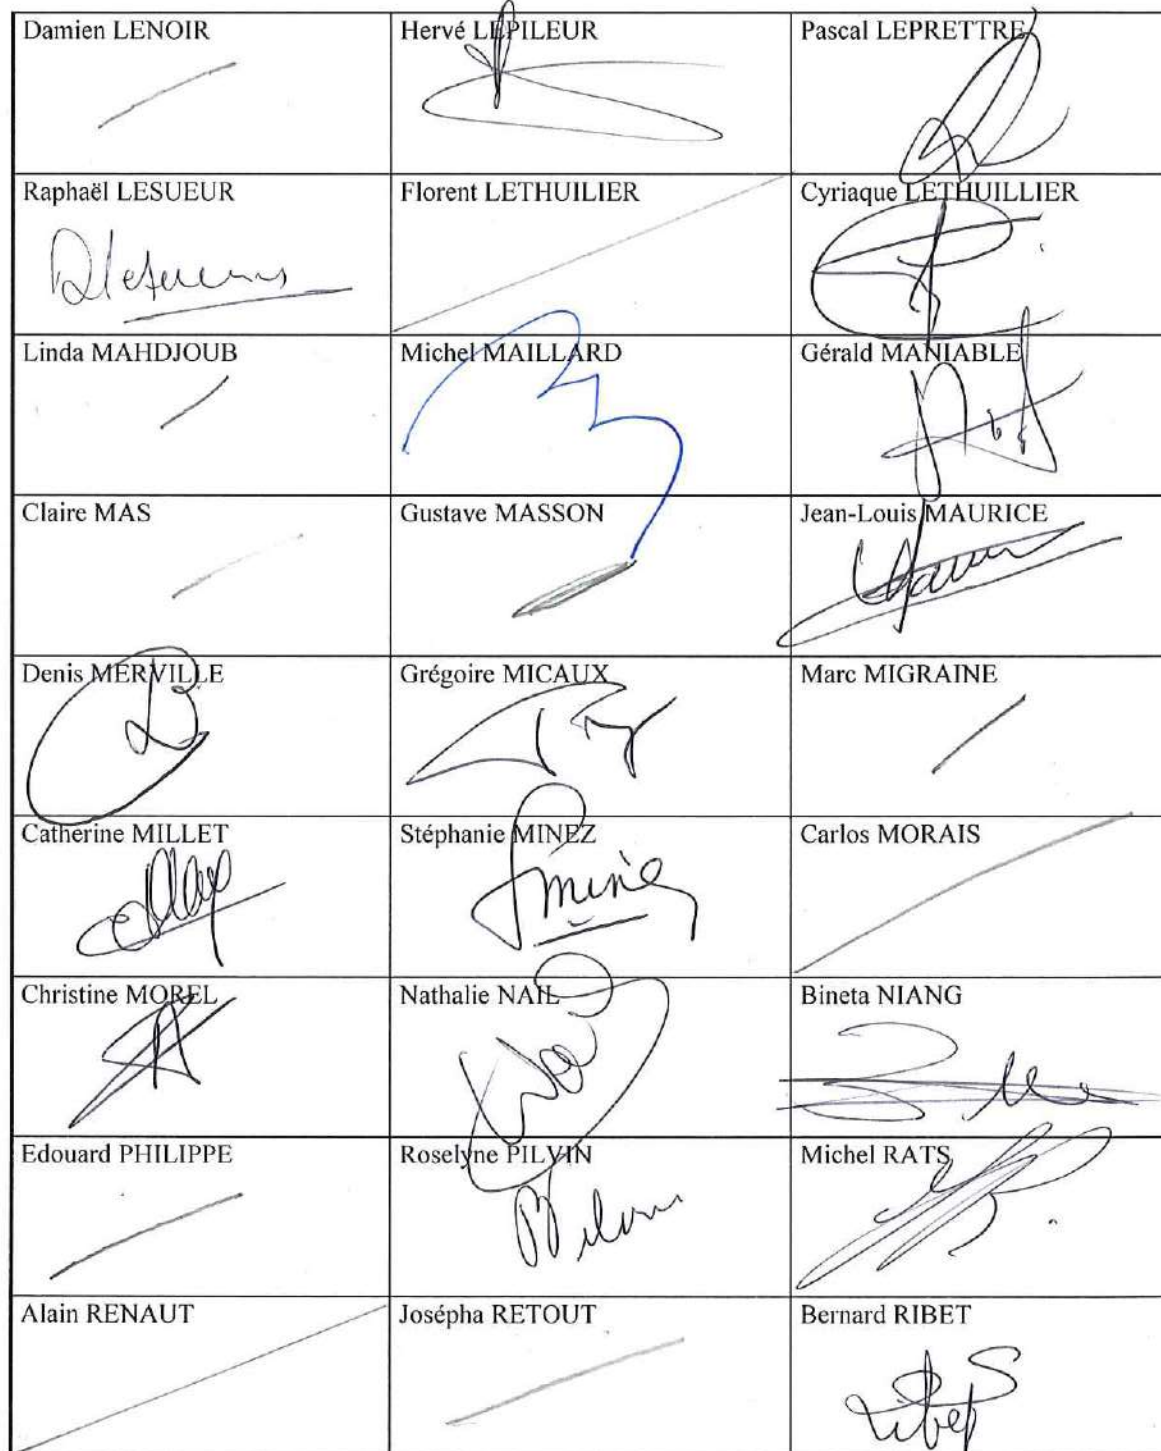 Damien LENOIR
Hervé LEPILEUR
Pascal LEPRETTRE
Raphaël LESUEUR
Florent LETHUILIER
Cyriaque LETHUILLIER
Linda MAHDJOUB
Michel MAILLARD
Gérald MANIABLE
Claire MAS
Gustave MASSON
Jean-Louis MAURICE
Denis MERVILLE
Grégoire MICAUX
Marc MIGRAINE
Catherine MILLET
Stéphanie MINEZ
Carlos MORAIS
Christine MOREL
Nathalie NAIL
Bineta NIANG
Edouard PHILIPPE
Roselyne PILVIN
Michel RATS
Alain RENAUT
Josépha RETOUT
Bernard RIBET